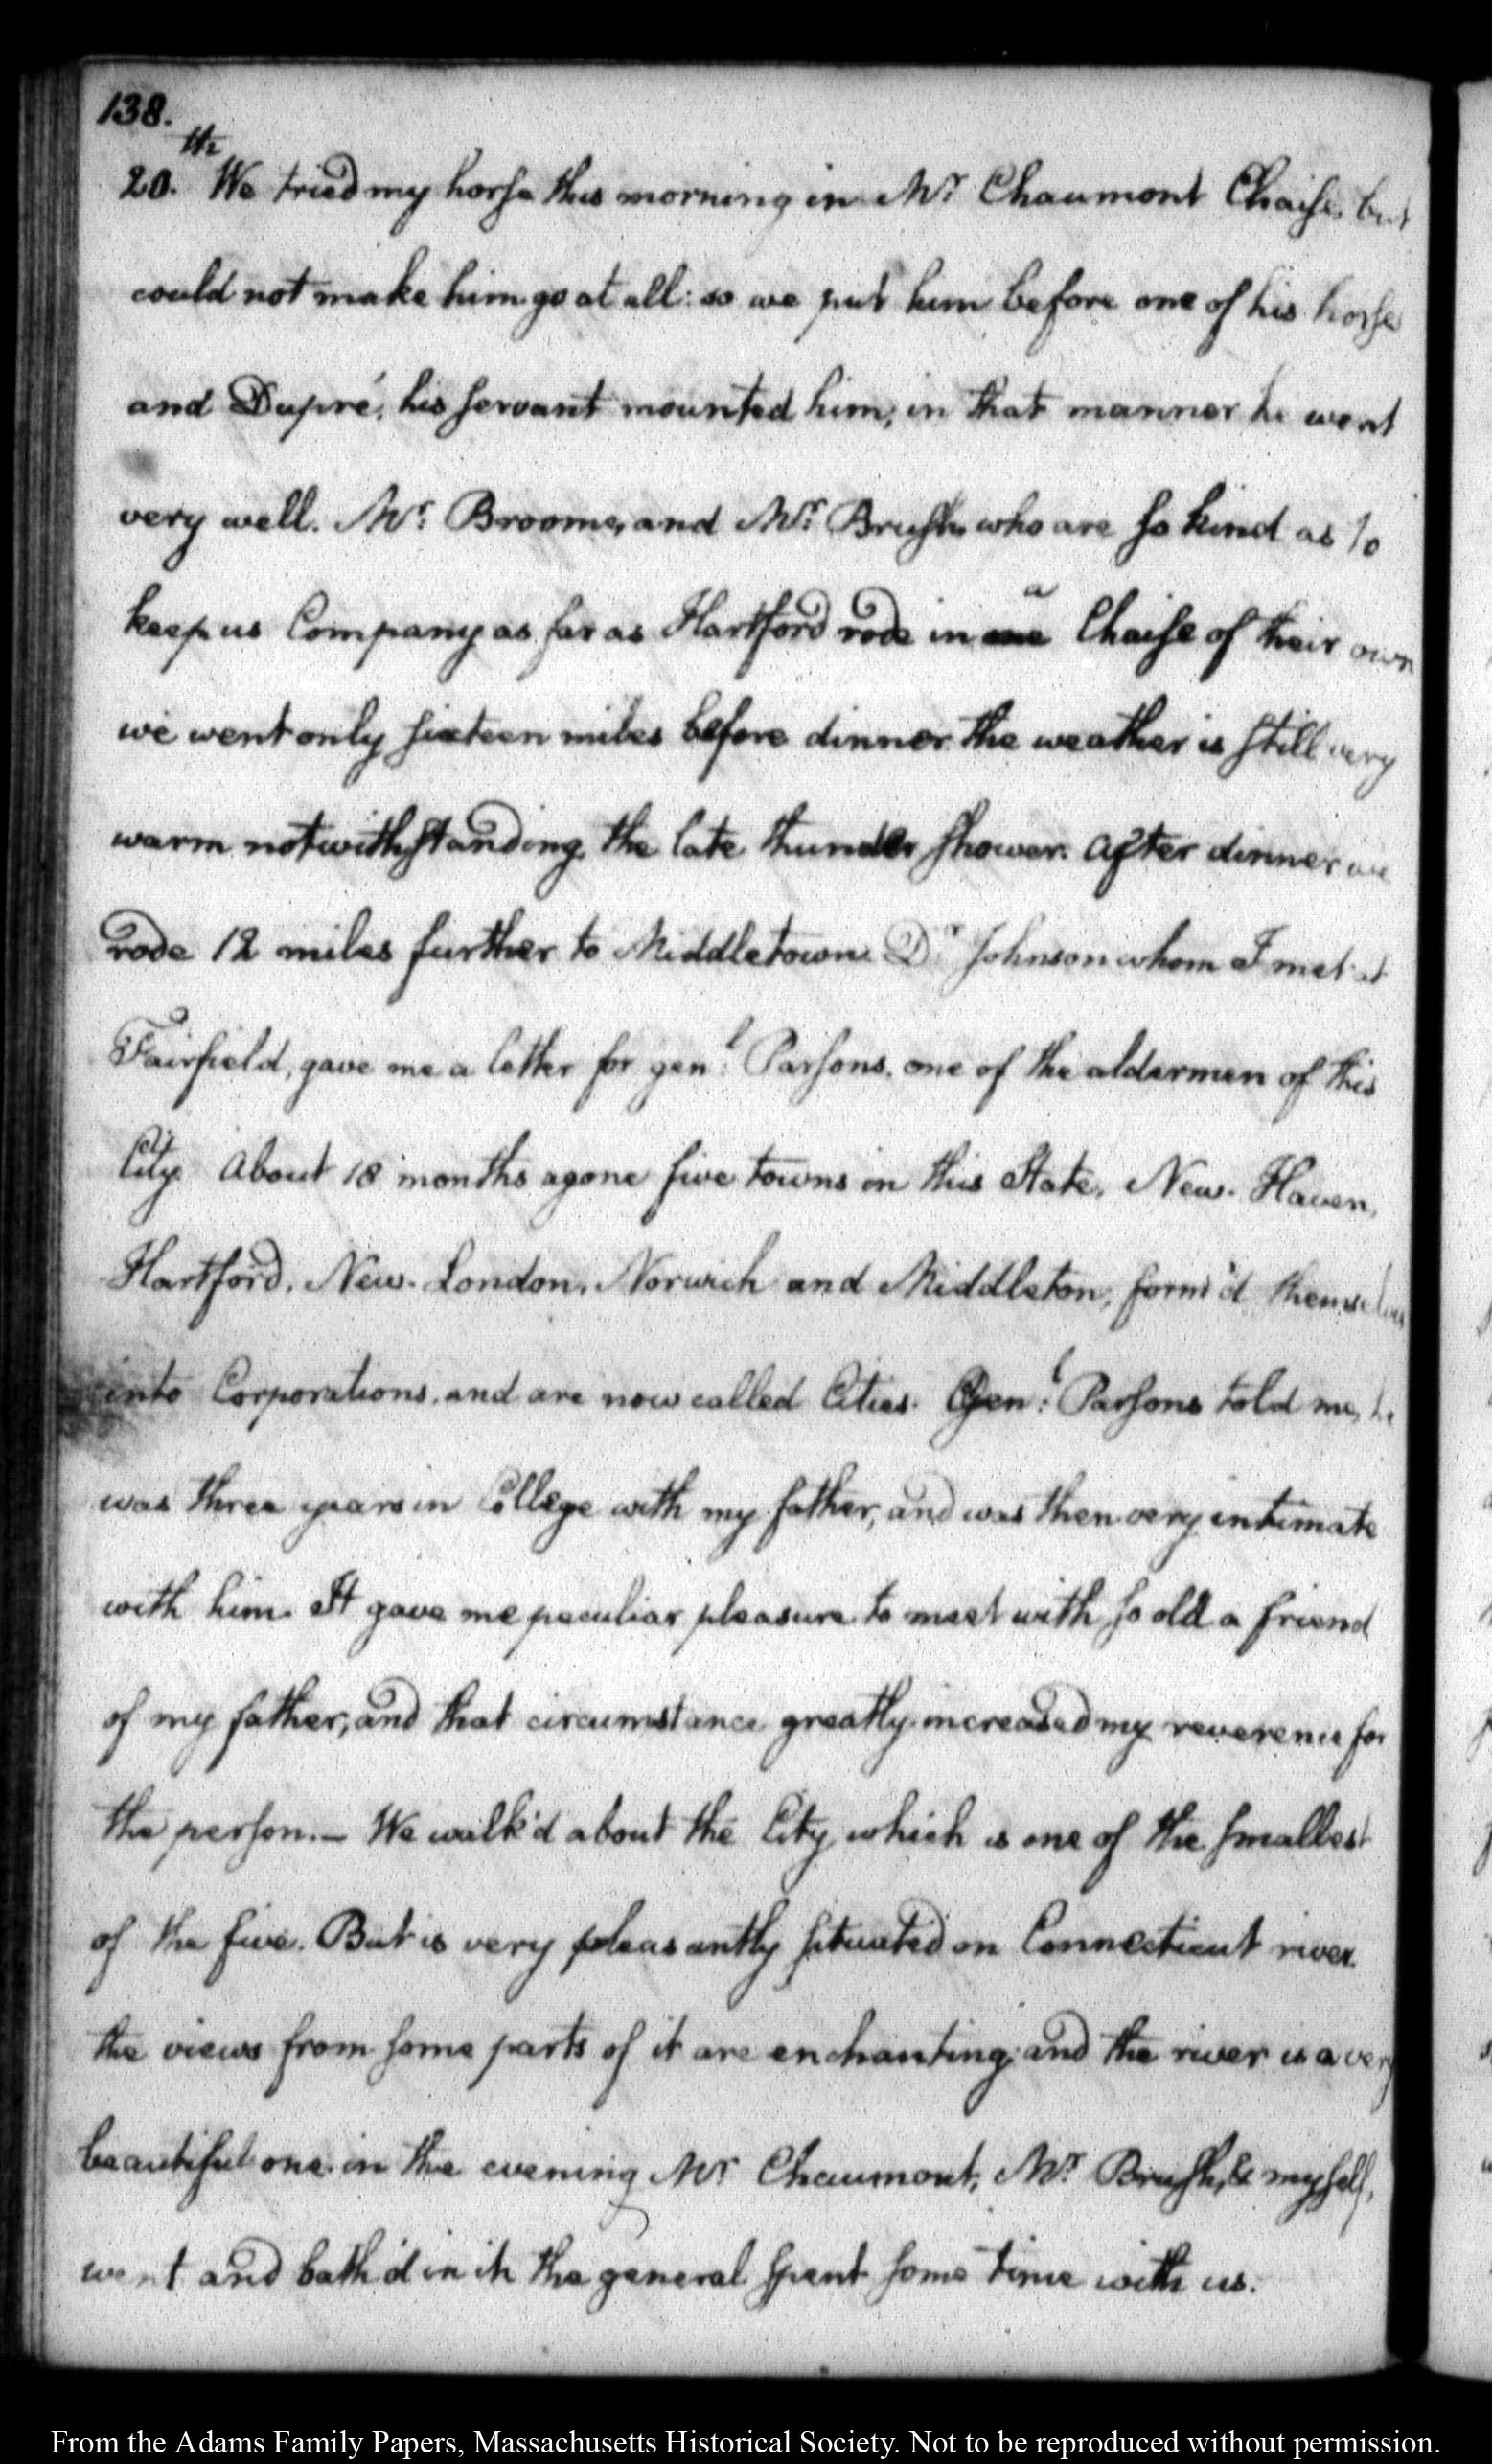 138.
20.th We tried my horse this morning in Mr Chaumont Chaise, but
could not make him go at all: so we put him before one of his horse
and Dupré, his servant mounted him; in that manner he went
very well. Mr. Broome, and Mr. Brush, who are so kind as to
keep us Company as far as Hartford rode in a Chaise of their own
we went only sixteen miles before dinner. the weather is still very
warm notwithstanding the late thunder shower. After dinner we
rode 12 miles further to Middletown. Dr. Johnson whom I met at
Fairfield, gave me a letter for genl: Parsons, one of the aldermen of this
City. About 18 months agone five towns in this State, New-Haven,
Hartford, New-London, Norwich and Middleton, form'd themselves
into Corporations, and are now called Cities. Genl: Parsons told me, he
was three years in College with my father, and was then very intimate
with him. It gave me peculiar pleasure to meet with so old a friend
of my father, and that circumstance greatly increased my reverence for
the person.— We walk'd about the City, which is one of the smallest
of the five. But is very pleasantly situated on Connecticut river.
the views from some parts of it are enchanting; and the river is a very
beautiful one. in the evening Mr Chaumont, Mr Brush, & myself,
went and bath'd in it. the general spent some time with us.
From the Adams Family Papers, Massachusetts Historical Society. Not to be reproduced without permission.